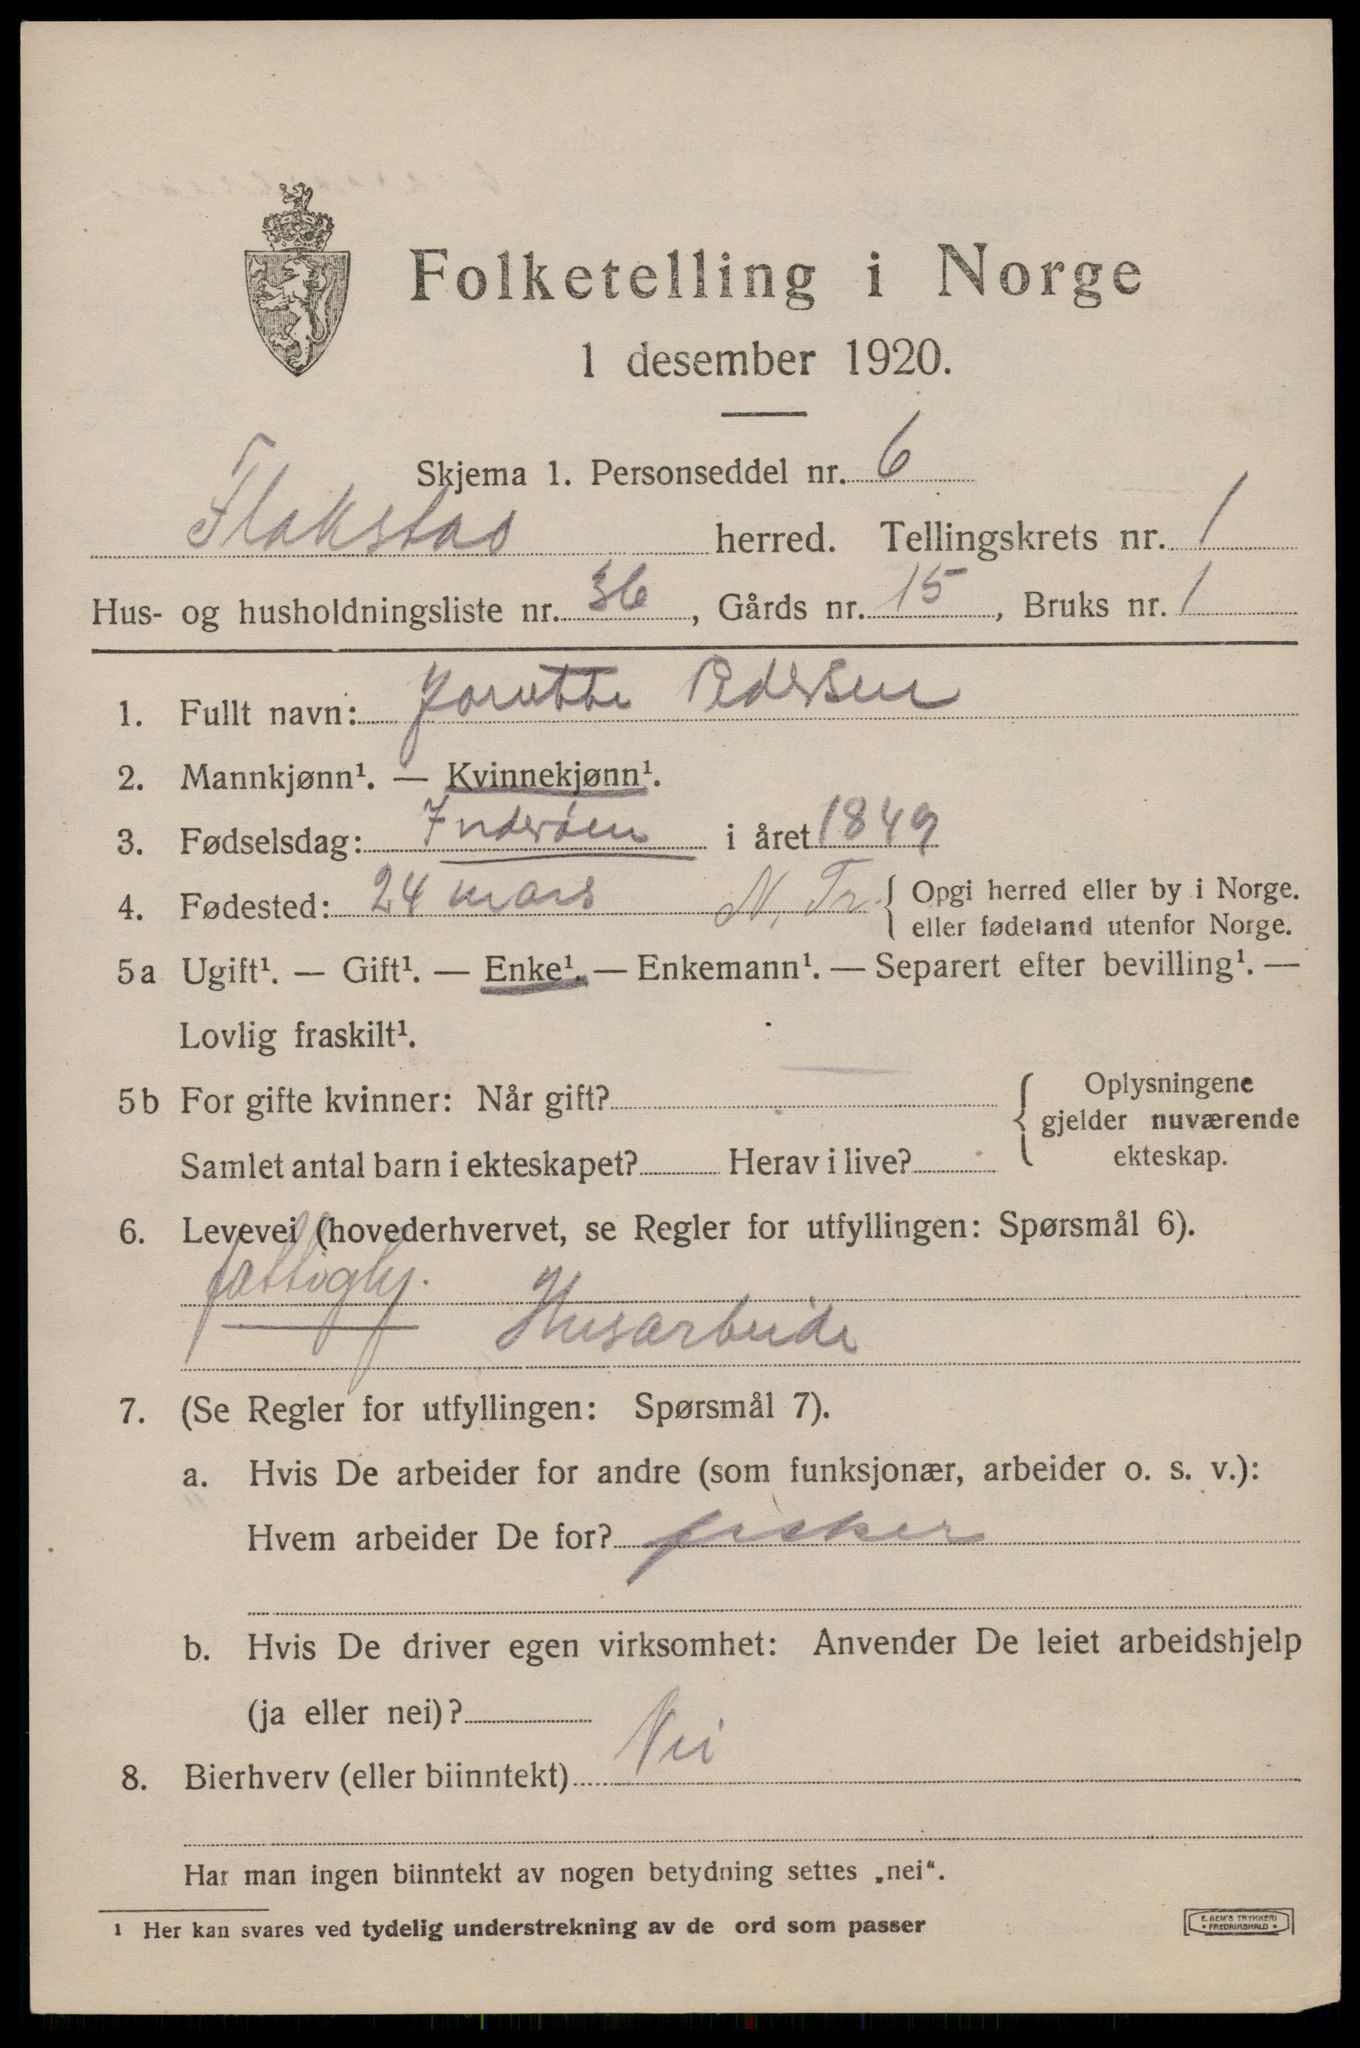 Folketelling i Norge
1 desember 1920.
Skjema 1. Personseddel nr. 6
Flakstad herred. Tellingskrets nr. 1
Hus- og husholdningsliste nr. 36, Gårds nr. 15, Bruks nr. 1
1. Fullt navn: Pedersen
2. Mannkjønn¹. — Kvinnekjønn¹.
3. Fødselsdag: Inderøen i året 1849
4. Fødested: 24 mars N. Tr. { Opgi herred eller by i Norge.
eller fødeland utenfor Norge.
5a Ugift¹. — Gift¹. — Enke¹. — Enkemann¹. — Separert efter bevilling¹. —
Lovlig fraskilt¹.
5b For gifte kvinner: Når gift?
Samlet antal barn i ekteskapet? Herav i live?
Oplysningene
gjelder nuværende
ekteskap.
6. Levevei (hovederhvervet, se Regler for utfyllingen: Spørsmål 6).
fattigly.
Husarbeide
7. (Se Regler for utfyllingen: Spørsmål 7).
a. Hvis De arbeider for andre (som funksjonær, arbeider o. s. v.):
Hvem arbeider De for? fisker
b. Hvis De driver egen virksomhet: Anvender De leiet arbeidshjelp
(ja eller nei)?
8. Bierhverv (eller biinntekt) Nei
Har man ingen biinntekt av nogen betydning settes „nei“.
¹ Her kan svares ved tydelig understrekning av de ord som passer
E. SEM'S TRYKKERI
* FREDRIKSHALD *